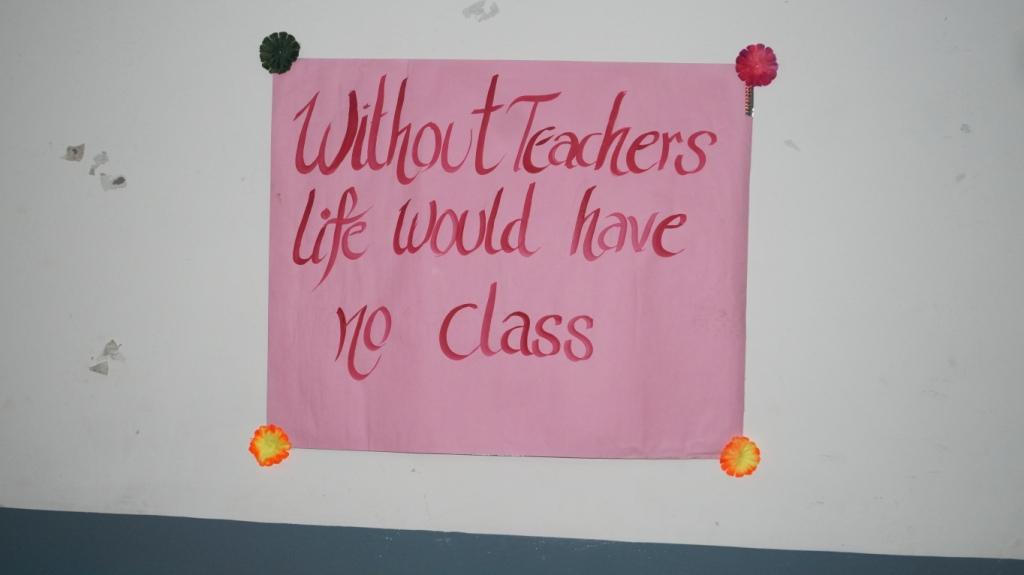 Without Teachers
life would have
no class